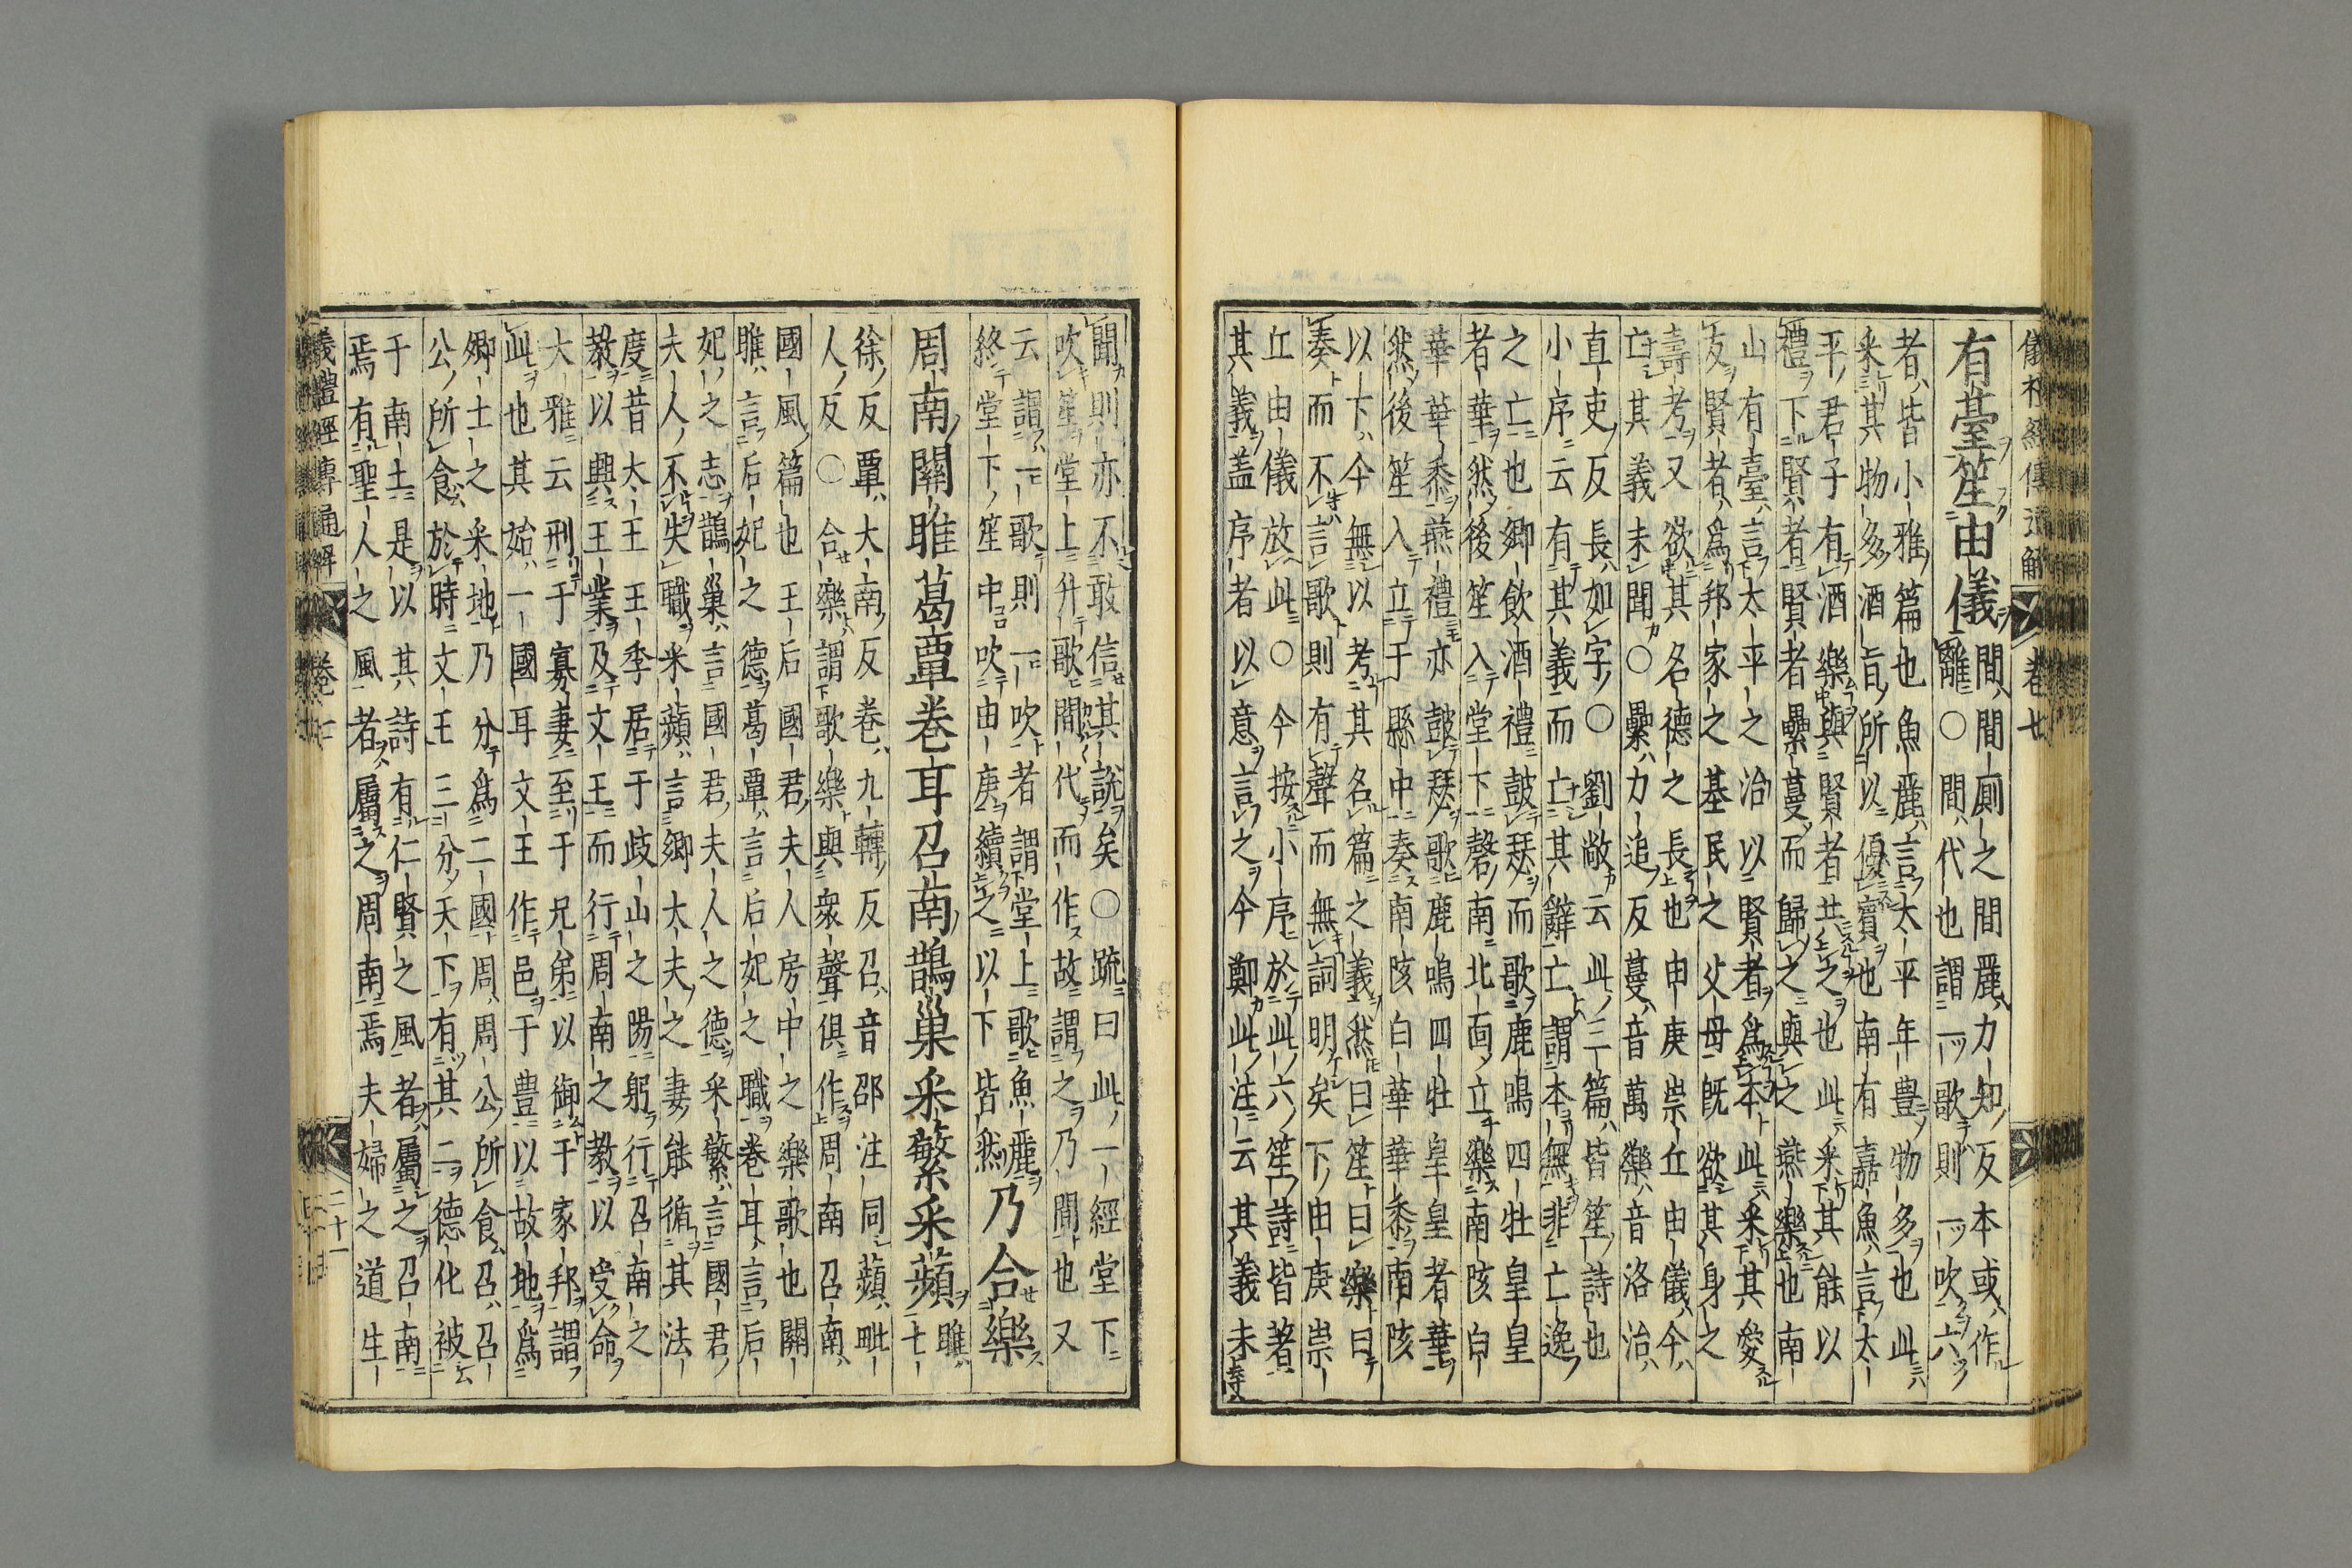 儀礼經傳通解 卷七
有臺笙由儀
間間厠之間麗力知反本或作
離○間代也謂一歌則一吹六
者皆小雅篇也魚麗言太平年豊物多也此
采其物多酒旨所以優賓也南有嘉魚言太
平君子有酒樂與賢者共之也此采其能以
禮下賢者賢者纍蔓而歸之與之燕樂也南
山有臺言太平之治以賢者爲本此采其愛
友賢者爲邦家之基民之父母既欲其身之
壽考又欲其名德之長也由庚崇丘由儀今
亡其義未聞○纍力追反蔓音萬樂音洛治
直吏反長如字○劉敞云此三篇皆笙詩也
小序云有其義而亡其辭亡謂本無非亡逸
之亡也卿飲酒禮鼓瑟而歌鹿鳴四牡皇皇
者華然後笙入堂下磬南北面立樂南陔白
華華黍燕禮亦鼓瑟歌鹿鳴四牡皇皇者華
然後笙入立于縣中奏南陔白華華黍南陔
以下今無以考其名篇之義然曰笙曰樂曰
奏而不言歌則有聲而無詞明矣下由庚崇
丘由儀放此○今按小序於此六笙詩皆著
其義盖序者以意言之今鄭此注云其義未
聞則亦不敢信其說矣○疏曰此一經堂下
吹笙堂上升歌間代而作故謂之乃間也又
云謂一歌則一吹者謂堂上歌魚麗
終堂下笙中吹由庚續之以下皆然
乃合樂
周南關雎葛覃卷耳召南鵲巢采蘩采蘋
雎
七
徐反覃大南反卷九轉反召音邵注同蘋毗
人反○合樂謂歌樂與衆聲俱作周南召南
國風篇也王后國君夫人房中之樂歌也關
雎言后妃之德葛覃言后妃之職卷耳言后
妃之志鵲巢言國君夫人之德采蘩言國君
夫人不失職采蘋言卿大夫之妻能循其法
度昔太王王季居于歧山之陽躬行召南之
教以興王業及文王而行周南之教以受命
大雅云刑于寡妻至于兄弟以御于家邦謂
此也其始一國耳文王作邑于豊以故地爲
卿士之采地乃分爲二國周周公所食召召
公所食於時文王三分天下有其二德化被
于南土是以其詩有仁賢之風者屬之召南
焉有聖人之風者屬之周南焉夫婦之道生
儀禮經傳通解 卷七 二十一